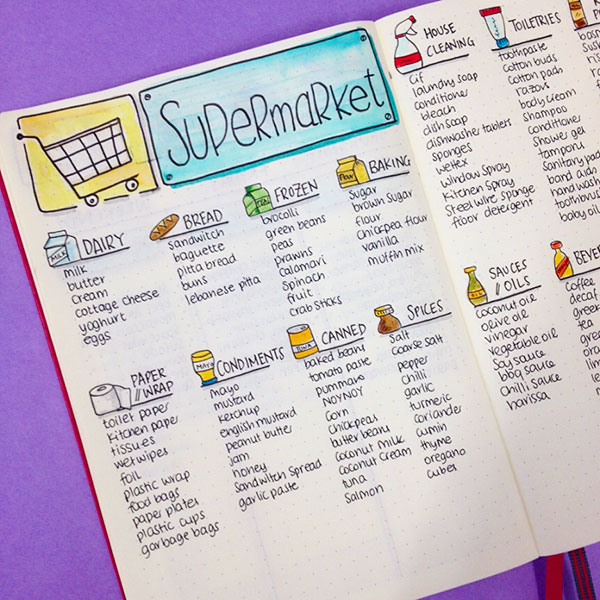 SUPERMARKET
MILK
DAIRY
milk
butter
cream
cottage cheese
yoghurt
eggs
BREAD
sandwitch
baguette
pitta bread
buns
lebanese pitta
FROZEN
brocolli
green beans
peas
prawns
calamari
spinach
fruit
crab sticks
Flour
BAKING
sugar
brown sugar
flour
chickpea flour
vanilla
muffin mix
PAPER
// WRAP
toilet paper
kitchen paper
tissues
wet wipes
foil
plastic wrap
food bags
paper plates
plastic cups
garbage bags
MAYO
CONDIMENTS
mayo
mustard
ketchup
english mustard
peanut butter
jam
honey
sandwitch spread
garlic paste
CANNED
baked beans
tomato paste
pummaro
NOYNOY
corn
chickpeas
butter beans
coconut milk
coconut cream
tuna
salmon
SPICES
salt
coarse salt
pepper
chilli
garlic
turmeric
coriander
cumin
thyme
oregano
cubes
HOUSE
CLEANING
cif
laundry soap
conditioner
bleach
dish soap
dishwasher tablets
sponges
wettex
window spray
kitchen spray
steel wire sponge
floor detergent
TOILETRIES
toothpaste
cotton buds
cotton pads
razors
body cream
shampoo
conditioner
shower gel
tampons
sanitary pad
band aids
handwash
toothbrush
baby oil
SAUCES
// OILS
coconut oil
olive oil
vinegar
vegetable oil
soy sauce
bbq sauce
chilli sauce
harissa
BEVE
coffee
decaf
greek
tea